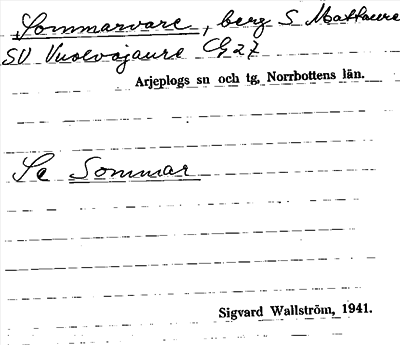 Sommarvare, berg S Mattaure
SV Vuolvojaure G27
Arjeplogs sn och tg, Norrbottens län.
Se Sommar
Sigvard Wallström, 1941.